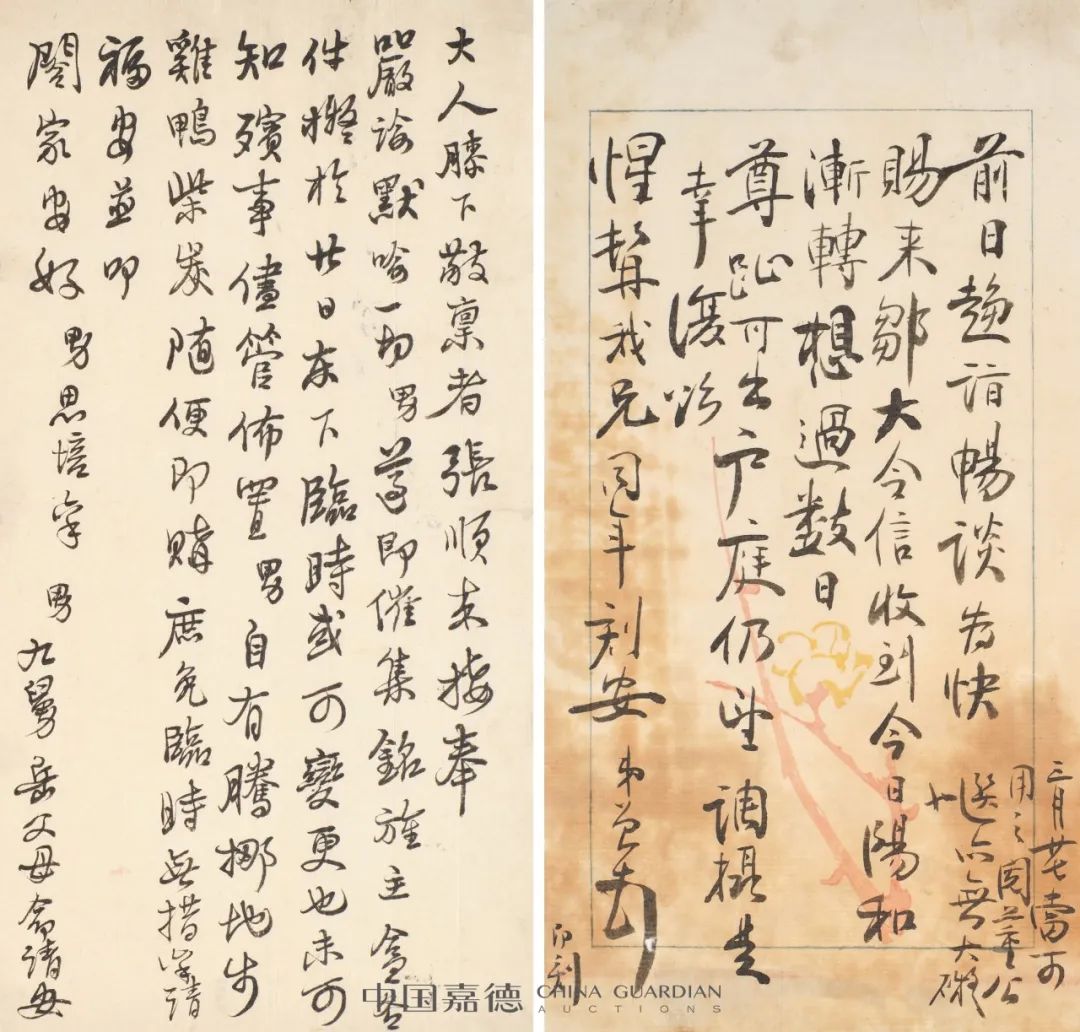 前日趨詣暢談為快
賜来鄒大令信收到今日陽和
漸轉想過數日
尊趾可出户庭仍望調攝是
幸復頌
惺齋我兄同年刻安 弟
三月廿七當可
用之
亦無大礙
即刻
大人膝下敬稟者張順来接奉
嚴諭默喻一切男等即催集銘旌主盦等
件擬於廿日東下臨時或可變更也未可
知殯事儘管佈置男自有騰挪地步
雞鴨柴炭随便即購庶免臨時無措請
福安並叩
閤家安好 男思培稟 男
九舅岳父母前請安
中国嘉德 CHINA GUARDIAN
AUCTIONS